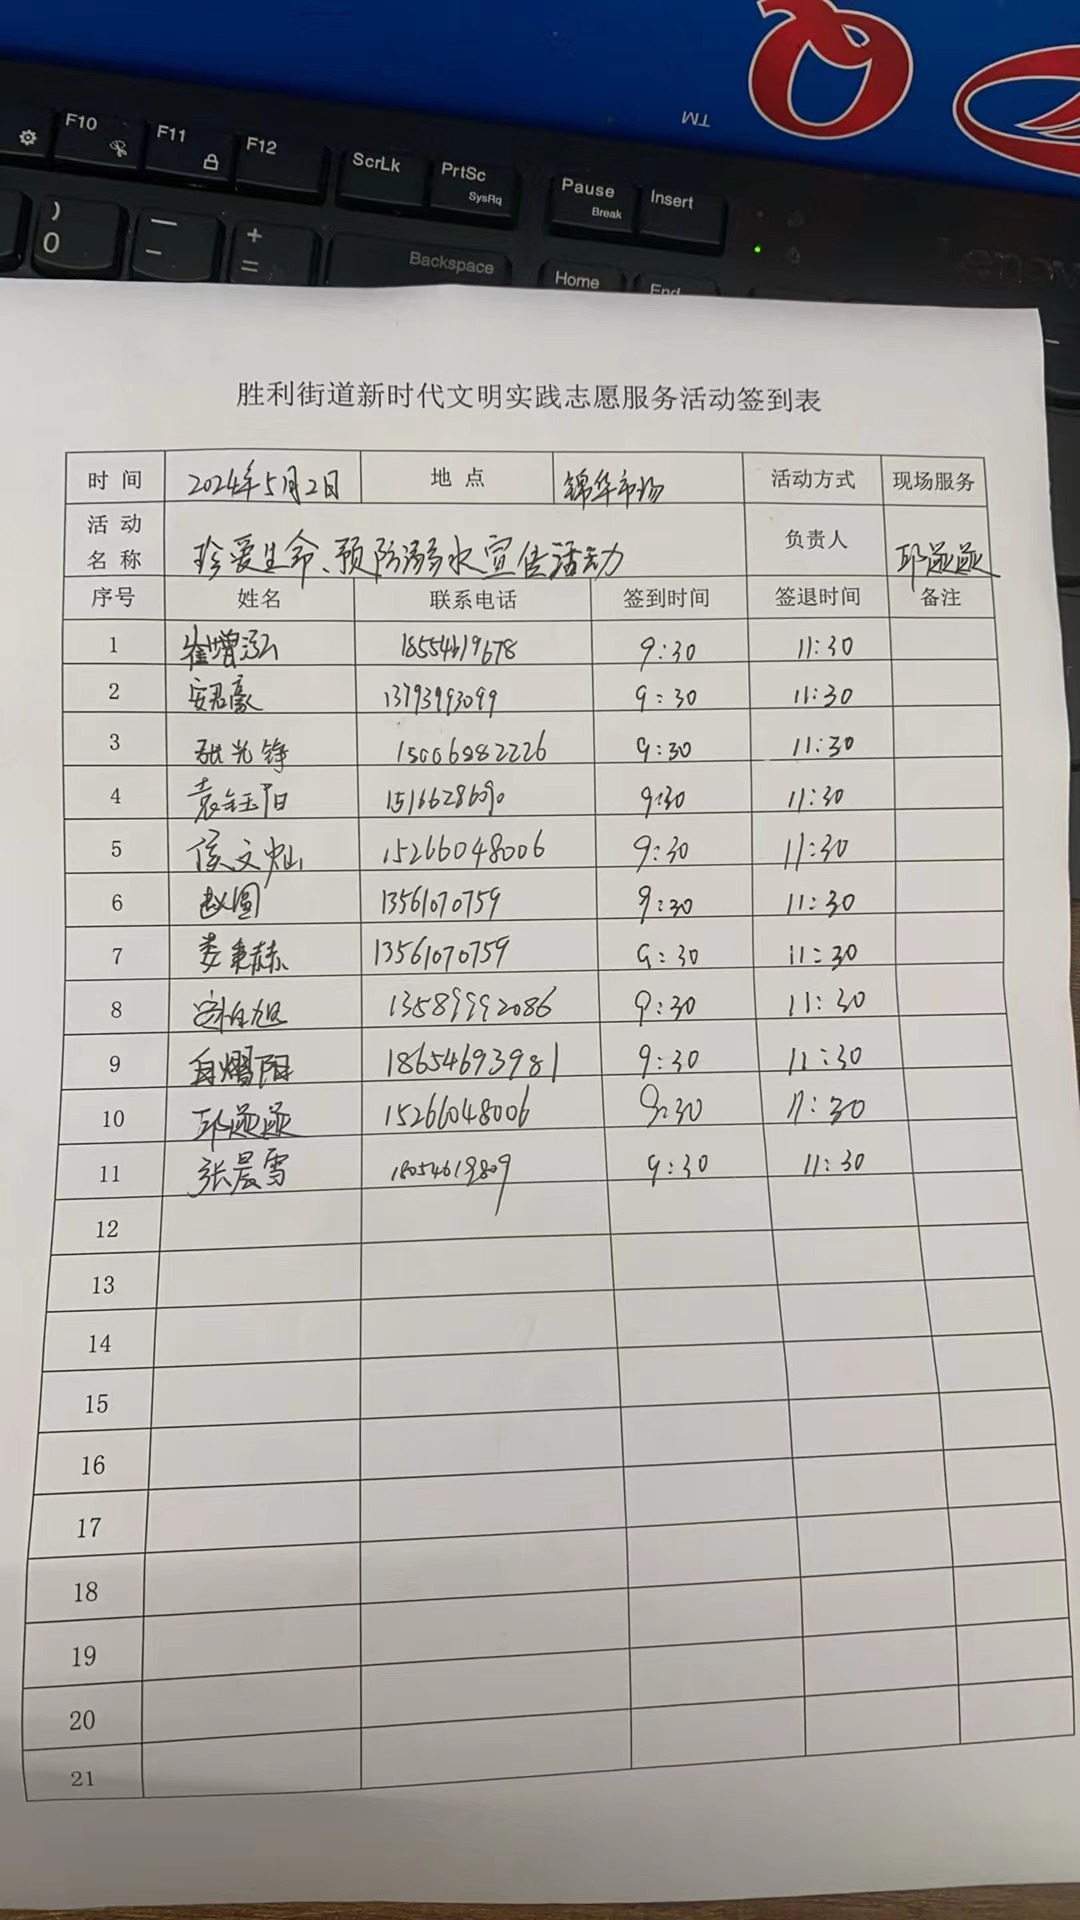 F10 F11 F12 ScrLk PrtSc SysRq Pause Break Insert
) 0 — - + = Backspace Home End
TM
胜利街道新时代文明实践志愿服务活动签到表
时间 2024年5月2日 地点 锦华市场 活动方式 现场服务
活动名称 珍爱生命、预防溺水宣传活动 负责人 邱
序号 姓名 联系电话 签到时间 签退时间 备注
1 崔增泓 18554619678 9:30 11:30
2 安君豪 13793993099 9:30 11:30
3 张光铮 15006982226 9:30 11:30
4 袁钰阳 1516628690 9:30 11:30
5 侯文灿 15266048006 9:30 11:30
6 赵圆 13561070759 9:30 11:30
7 娄秉赫 13561070759 9:30 11:30
8 13589992086 9:30 11:30
9 18654693981 9:30 11:30
10 邱 15266048006 9:30 11:30
11 张晨雪 18054619809 9:30 11:30
12
13
14
15
16
17
18
19
20
21